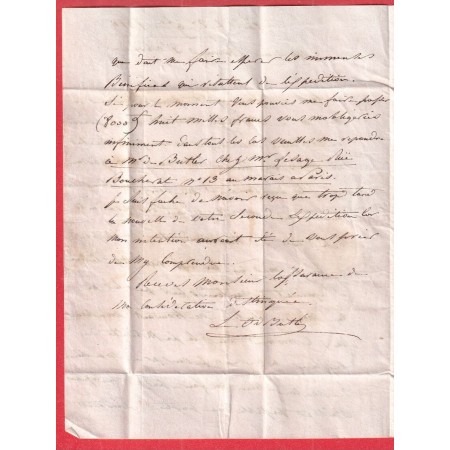 que doit me faire esperer les immenses
Benefices qui resulteront de l'expedition.
Si pour le moment vous pouvies me faire passer
(8000 f) huit milles francs vous m'obligeries
infiniment dans tous les cas veuilles me repondre
à Mr De Butler chez Mr Lesage Rüe
Boucherat n° 13 au marais a Paris.
je suis faché de n'avoir reçu que trop tard
la nouvelle de votre Seconde Expedition car
mon intention auroit été de vous prier
de m'y comprendre.
Recevez Monsieur l'assurance de
ma consideration distinguée.